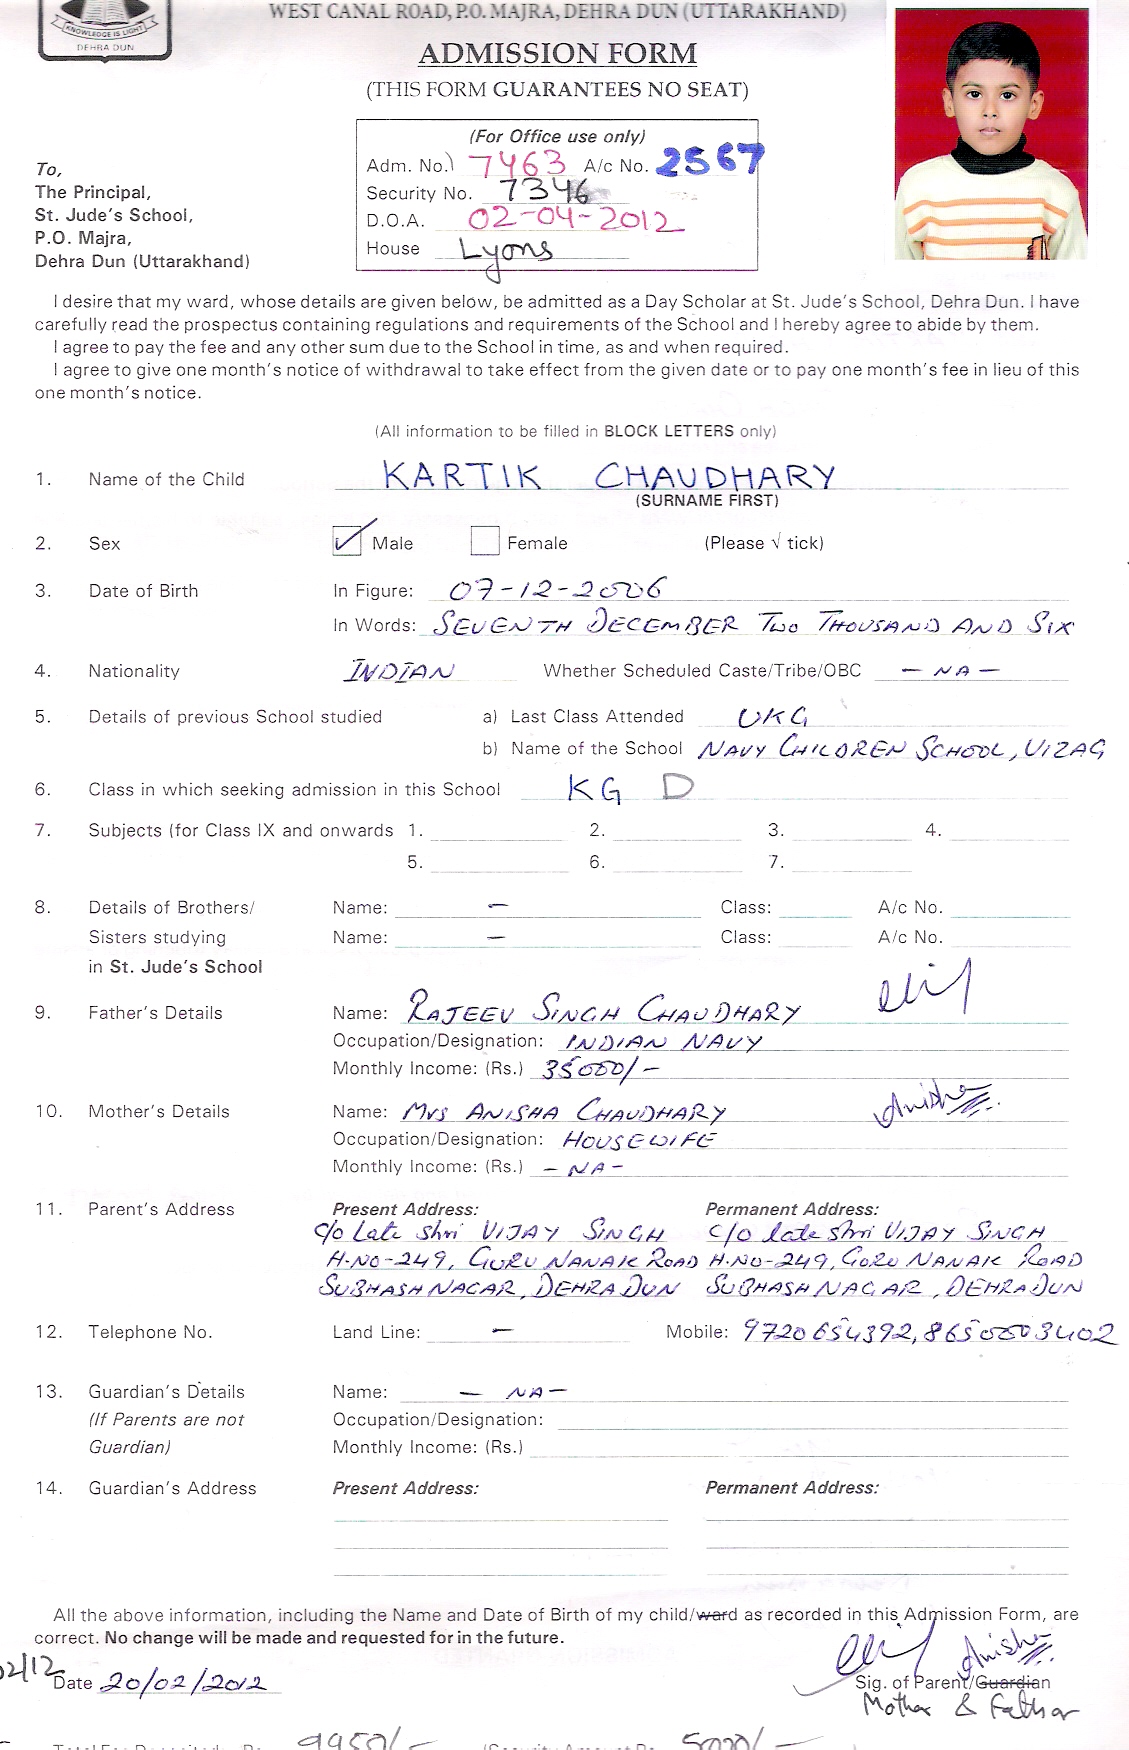 KNOWLEDGE IS LIGHT
DEHRA DUN
WEST CANAL ROAD, P.O. MAJRA, DEHRA DUN (UTTARAKHAND)
ADMISSION FORM
(THIS FORM GUARANTEES NO SEAT)
(For Office use only)
Adm. No. 7463 A/c No. 2567
Security No. 7346
D.O.A. 02-04-2012
House Lyons
To,
The Principal,
St. Jude's School,
P.O. Majra,
Dehra Dun (Uttarakhand)
I desire that my ward, whose details are given below, be admitted as a Day Scholar at St. Jude's School, Dehra Dun. I have
carefully read the prospectus containing regulations and requirements of the School and I hereby agree to abide by them.
I agree to pay the fee and any other sum due to the School in time, as and when required.
I agree to give one month's notice of withdrawal to take effect from the given date or to pay one month's fee in lieu of this
one month's notice.
(All information to be filled in BLOCK LETTERS only)
1. Name of the Child KARTIK CHAUDHARY
(SURNAME FIRST)
2. Sex Male Female (Please √ tick)
3. Date of Birth In Figure: 07-12-2006
In Words: SEVENTH DECEMBER TWO THOUSAND AND SIX
4. Nationality INDIAN Whether Scheduled Caste/Tribe/OBC - NA -
5. Details of previous School studied a) Last Class Attended UKG
b) Name of the School NAVY CHILDREN SCHOOL, VIZAG
6. Class in which seeking admission in this School KG D
7. Subjects (for Class IX and onwards 1. 2. 3. 4.
5. 6. 7.
8. Details of Brothers/ Name: - Class: A/c No.
Sisters studying Name: - Class: A/c No.
in St. Jude's School
9. Father's Details Name: RAJEEV SINGH CHAUDHARY
Occupation/Designation: INDIAN NAVY
Monthly Income: (Rs.) 35000/-
10. Mother's Details Name: Mrs ANISHA CHAUDHARY Anisha
Occupation/Designation: HOUSEWIFE
Monthly Income: (Rs.) - NA -
11. Parent's Address Present Address: Permanent Address:
C/o Late Shri VIJAY SINGH C/o late Shri VIJAY SINGH
H.NO-249, GURU NANAK ROAD H.NO-249, GURU NANAK ROAD
SUBHASH NAGAR, DEHRA DUN SUBHASH NAGAR, DEHRA DUN
12. Telephone No. Land Line: - Mobile: 9720654392, 8650003402
13. Guardian's Details Name: - NA -
(If Parents are not Occupation/Designation:
Guardian) Monthly Income: (Rs.)
14. Guardian's Address Present Address: Permanent Address:
All the above information, including the Name and Date of Birth of my child/ward as recorded in this Admission Form, are
correct. No change will be made and requested for in the future.
Anisha
02/12
Date 20/02/2012 Sig. of Parent/Guardian
Mother & Father
9950/- 5000/-